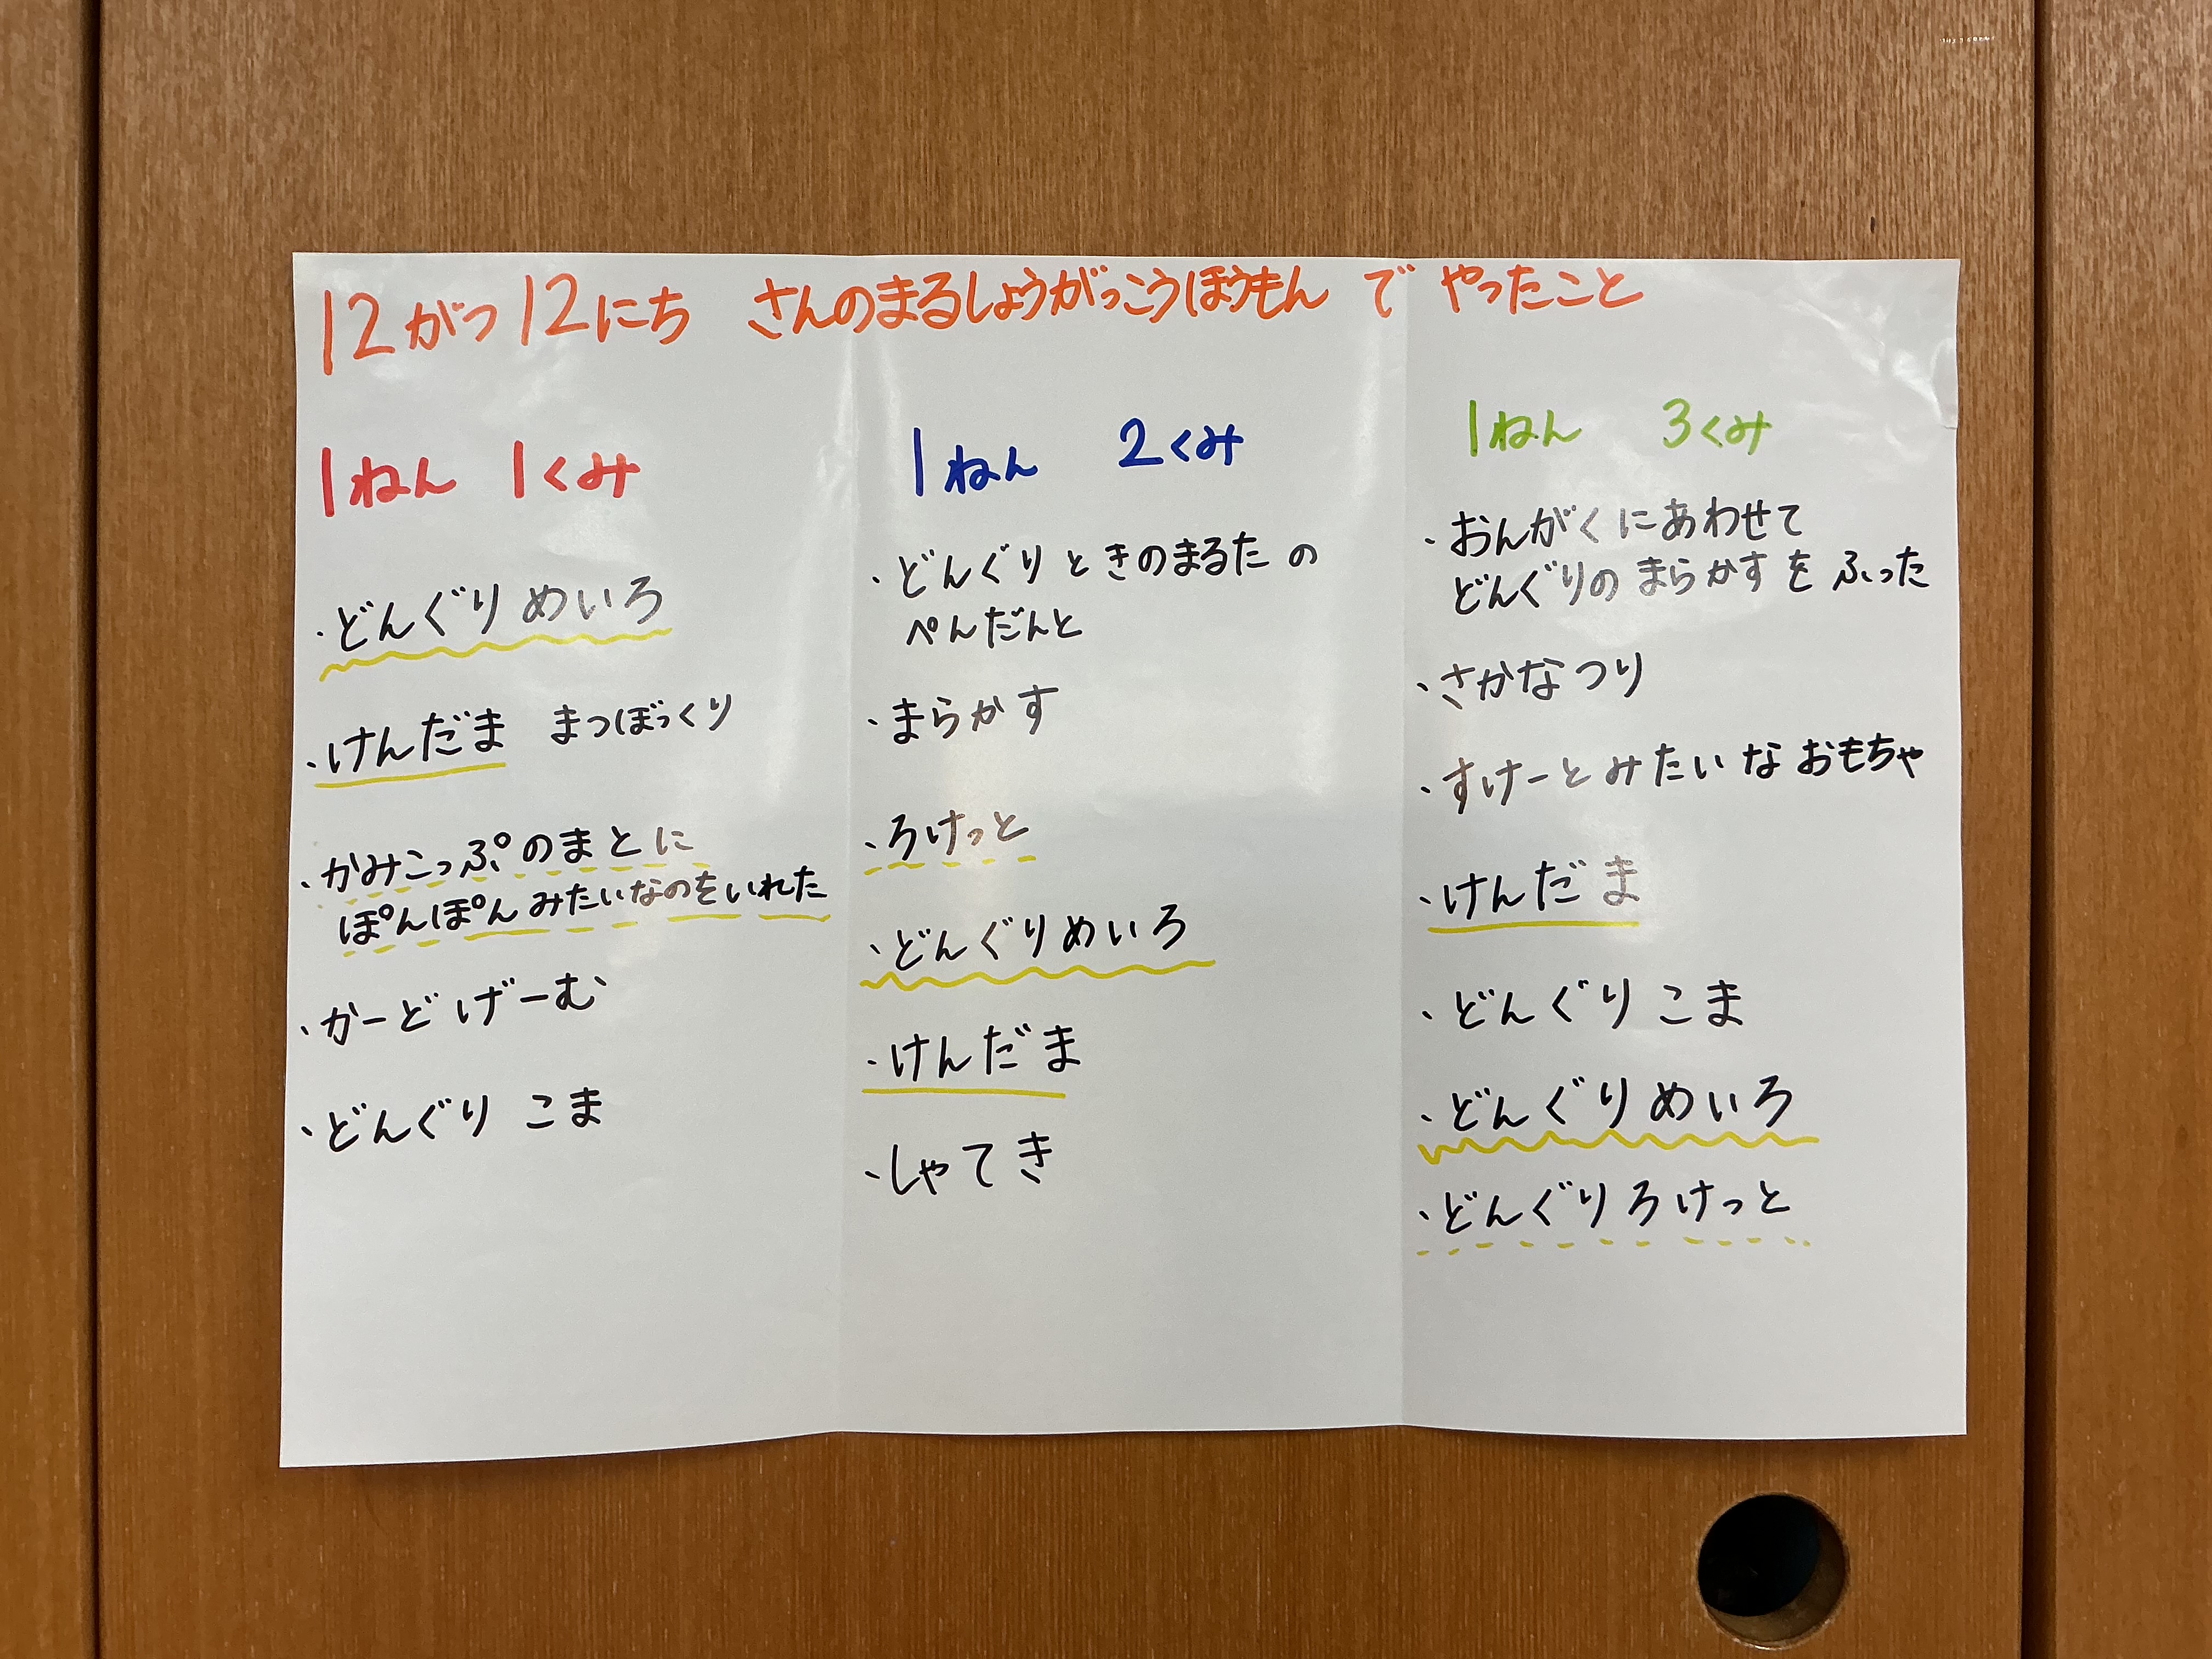 12がつ12にち さんのまるしょうがっこうほうもん で やったこと
1ねん 1くみ
・どんぐり めいろ
・けんだま まつぼっくり
・かみこっぷ のまとに
ぽんぽん みたいなのをいれた
・かーど げーむ
・どんぐり こま
1ねん 2くみ
・どんぐり と きのまるた の
ぺんだんと
・まらかす
・ろけっと
・どんぐりめいろ
・けんだま
・しゃてき
1ねん 3くみ
・おんがくにあわせて
どんぐりの まらかす を ふった
・さかなつり
・すけーと みたいな おもちゃ
・けんだま
・どんぐり こま
・どんぐり めいろ
・どんぐりろけっと